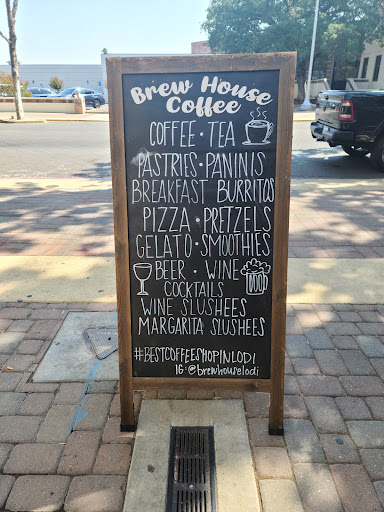 Brew House
Coffee
COFFEE • TEA
PASTRIES • PANINIS
BREAKFAST BURRITOS
PIZZA • PRETZELS
GELATO • SMOOTHIES
BEER • WINE
COCKTAILS
WINE SLUSHEES
MARGARITA SLUSHEES
#BESTCOFFEESHOPINLODI
IG: @brewhouselodi